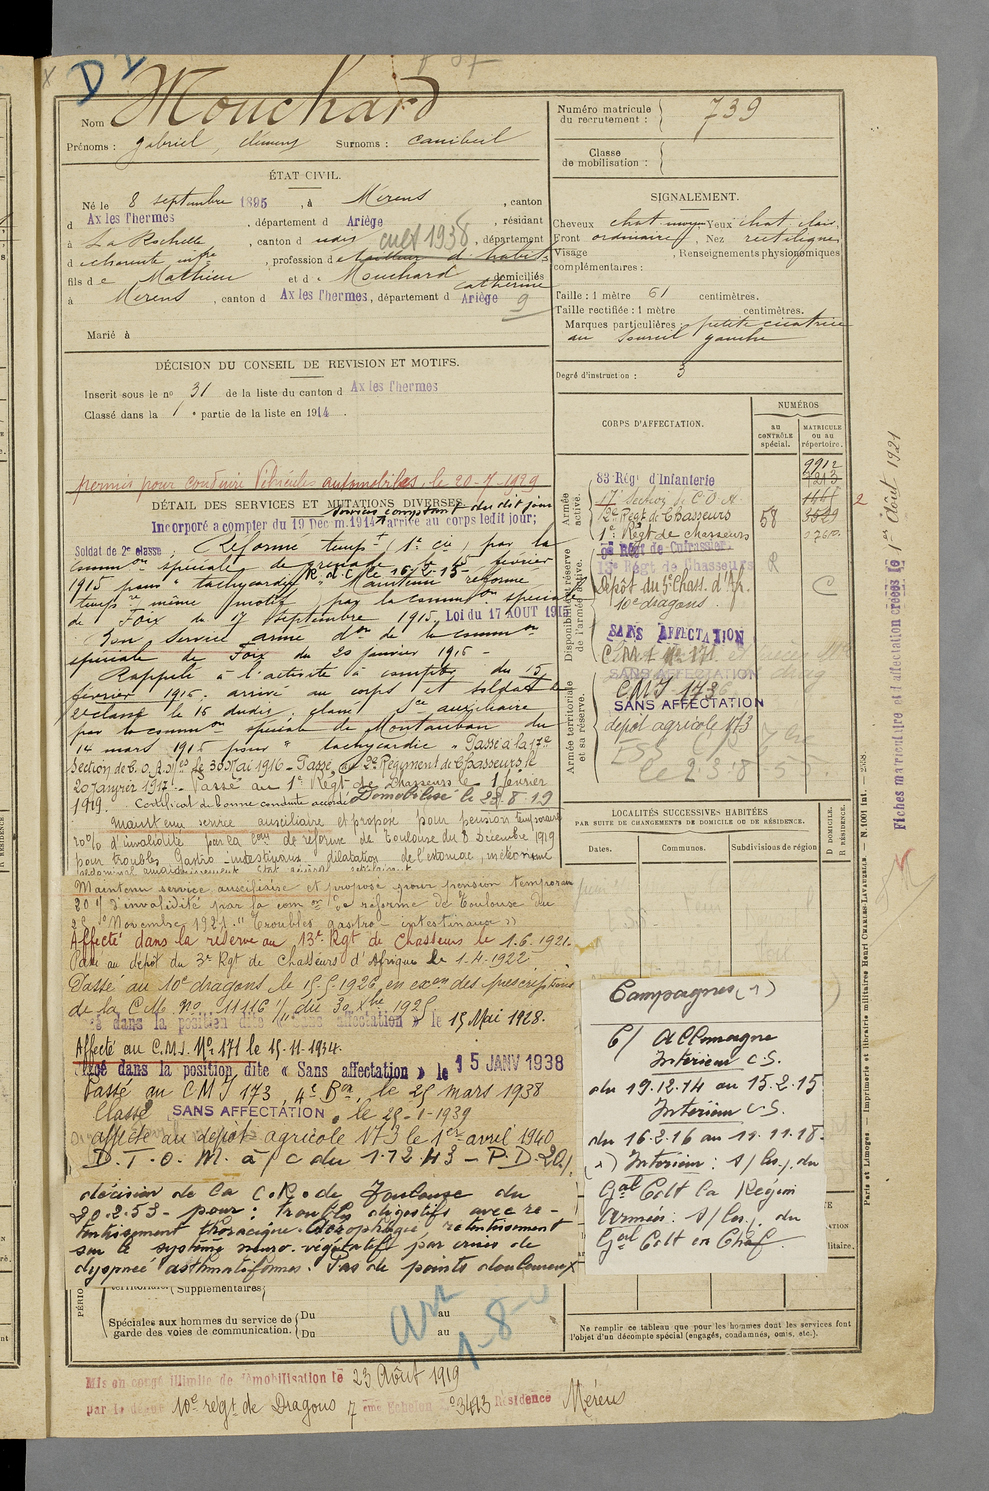 D
Nom Mouchard
Prénoms : gabriel, clément Surnoms : canibeil
ÉTAT CIVIL.
Né le 8 septembre 1895, à Mérens, canton
d Ax les Thermes, département d Ariège, résidant
à La Rochelle, canton d cult 1938, département
d charente infre, profession de
fils de Mathieu et de Mouchard catherine domiciliés
à Mérens, canton d Ax les Thermes, département d Ariège
9
Marié à
DÉCISION DU CONSEIL DE REVISION ET MOTIFS.
Inscrit sous le no 31 de la liste du canton d Ax les Thermes
Classé dans la 1e partie de la liste en 1914.
permis pour conduire Véhicules automobiles, le 20-7-1929
DÉTAIL DES SERVICES ET MUTATIONS DIVERSES.
Services comptant du dit jour
Incorporé a compter du 19 Décem. 1914 arrivé au corps ledit jour;
Soldat de 2e classe, Réformé tempre (1e cie) par la
common spéciale de février
1915 pour "tachycardie" Maintenu réformé
temp. même motif par la common spéciale
de Foix du 17 septembre 1915. Loi du 17 AOUT 1915
Bon service armé don de la common
spéciale de Foix du 20 janvier 1916 -
Rappelé à l'activité à compter du 15
février 1916. arrivé au corps et soldat de
2e classe le 16 dudit, classé Sce auxiliaire
par la common spéciale de Montauban du
14 mars 1916 pour "tachycardie" Passé à la 17e
Section de C.O.A. le 30 Mai 1916 - Passé au 2e Régiment de Chasseurs le
20 Janvier 1917. Passé au 1er Régt de Chasseurs le 1 février
1919. Certificat de bonne conduite accordé Démobilisé le 23-8-19
Maintenu service auxiliaire et proposé pour pension temporaire
20% d'invalidité par la Con de réforme de Toulouse du 8 Décembre 1919
pour troubles Gastro-intestinaux, dilatation de l'estomac, météorisme
Maintenu service auxiliaire et proposé pour pension temporaire
20% d'invalidité par la com on de réforme de Toulouse du
25 Novembre 1921. "Troubles gastro-intestinaux"
Affecté dans la réserve au 13e Rgt de Chasseurs le 1.6.1921.
Passé au dépôt du 3e Rgt de Chasseurs d'Afrique le 1.4.1922
Passé au 10e dragons le 15.5.1926, en exon des prescriptions
de la C.M. no 11116 1/11 du 30 Xbre 1925
dans la position dite « Sans affectation » le 15 Mai 1928.
Affecté au C.M.I. No 171 le 15.11.1934.
Placé dans la position dite « Sans affectation » le 15 JANV 1938
Passé au CMI 173, 4e Bon, le 25 mars 1938
Classé SANS AFFECTATION, le 25-1-1939
affecté au dépôt agricole 173 le 1er avril 1940
D.T.O.M. à/c du 1-12-43 - P.D. 20%
décision de la C.R. de Toulouse du
20.2.53 - pour : troubles digestifs avec re-
tentissement thoracique. Aérophagie, retentissement
sur le système neuro-végétatif par crises de
dyspnée asthmatiformes. Pas de points douloureux
territoriale. (Supplémentaires
Spéciales aux hommes du service de
garde des voies de communication.
Du au
Du au
1-8-
Mis en congé illimité de démobilisation le 23 Août 1919
par le dépôt 10e régt de Dragons 7eme Echelon no 3493 Résidence Mérens
Numéro matricule
du recrutement : 739
Classe
de mobilisation :
SIGNALEMENT.
Cheveux chat. moyen Yeux chat. clair
Front ordinaire, Nez rectiligne
Visage , Renseignements physionomiques
complémentaires :
Taille : 1 mètre 61 centimètres.
Taille rectifiée : 1 mètre centimètres.
Marques particulières : petite cicatrice
au sourcil gauche
Degré d'instruction : 3
CORPS D'AFFECTATION.
NUMÉROS
au CONTRÔLE spécial.
MATRICULE ou au répertoire.
Armée active.
83 Rég d'Infanterie
17e Section de C.O.A.
2e Régt de Chasseurs 58
1er Régt de chasseurs
Disponibilité et réserve de l'armée active.
9e Régt de Cuirassier.
13e Régt de Chasseurs R
Dépôt du 3e Chass. d'Af. C
10e dragons.
SANS AFFECTATION
C.M.I. No 171
SANS AFFECTATION
Armée territoriale et sa réserve.
CMI 173
SANS AFFECTATION
dépôt agricole 173
LOCALITÉS SUCCESSIVES HABITÉES
PAR SUITE DE CHANGEMENTS DE DOMICILE OU DE RÉSIDENCE.
Dates. Communes. Subdivisions de région
D DOMICILE.
R RÉSIDENCE.
Campagnes (1)
C/ Allemagne
Intérieur C.S.
du 19.12.14 au 15.2.15
Intérieur C.S.
du 16.2.16 au 11.11.18.
(1) Intérieur : s/les j. du
Gal Cdt la Région
Armées : s/les j. du
Gal Cdt en Chef
Ne remplir ce tableau que pour les hommes dont les services font
l'objet d'un décompte spécial (engagés, condamnés, omis, etc.).
Fiches matriculaire et d'affectation créées le 1er Août 1921
Paris et Limoges. — Imprimerie et librairie militaires Henri CHARLES-LAVAUZELLE. — N. 1001 Int. — 2.58.